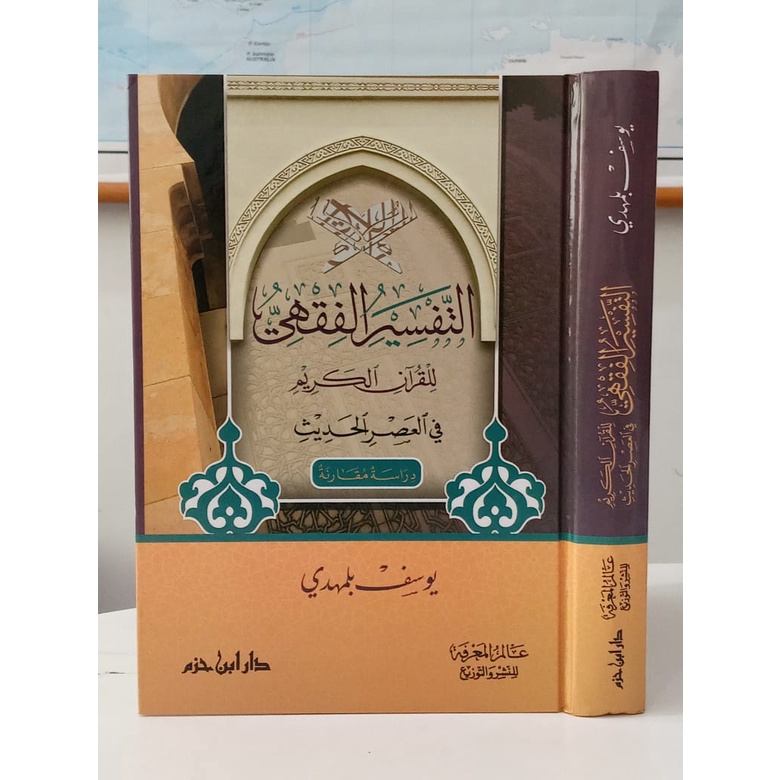 التَّفْسِيرُ الفِقْهِيُّ
لِلْقُرْآنِ الكَرِيْمِ
فِي العَصْرِ الحَدِيْثِ
دِرَاسَةٌ مُقَارِنَةٌ
يوسف بلمهدي
عَالَمُ المَعْرِفَةِ
لِلنَّشْرِ وَالتَّوْزِيْعِ
دار ابن حزم
يوسف بلمهدي
التَّفْسِيرُ الفِقْهِيُّ
لِلْقُرْآنِ الكَرِيْمِ
فِي العَصْرِ الحَدِيْثِ
عَالَمُ المَعْرِفَةِ
لِلنَّشْرِ وَالتَّوْزِيْعِ
دار ابن حزم
AUSTRALIA